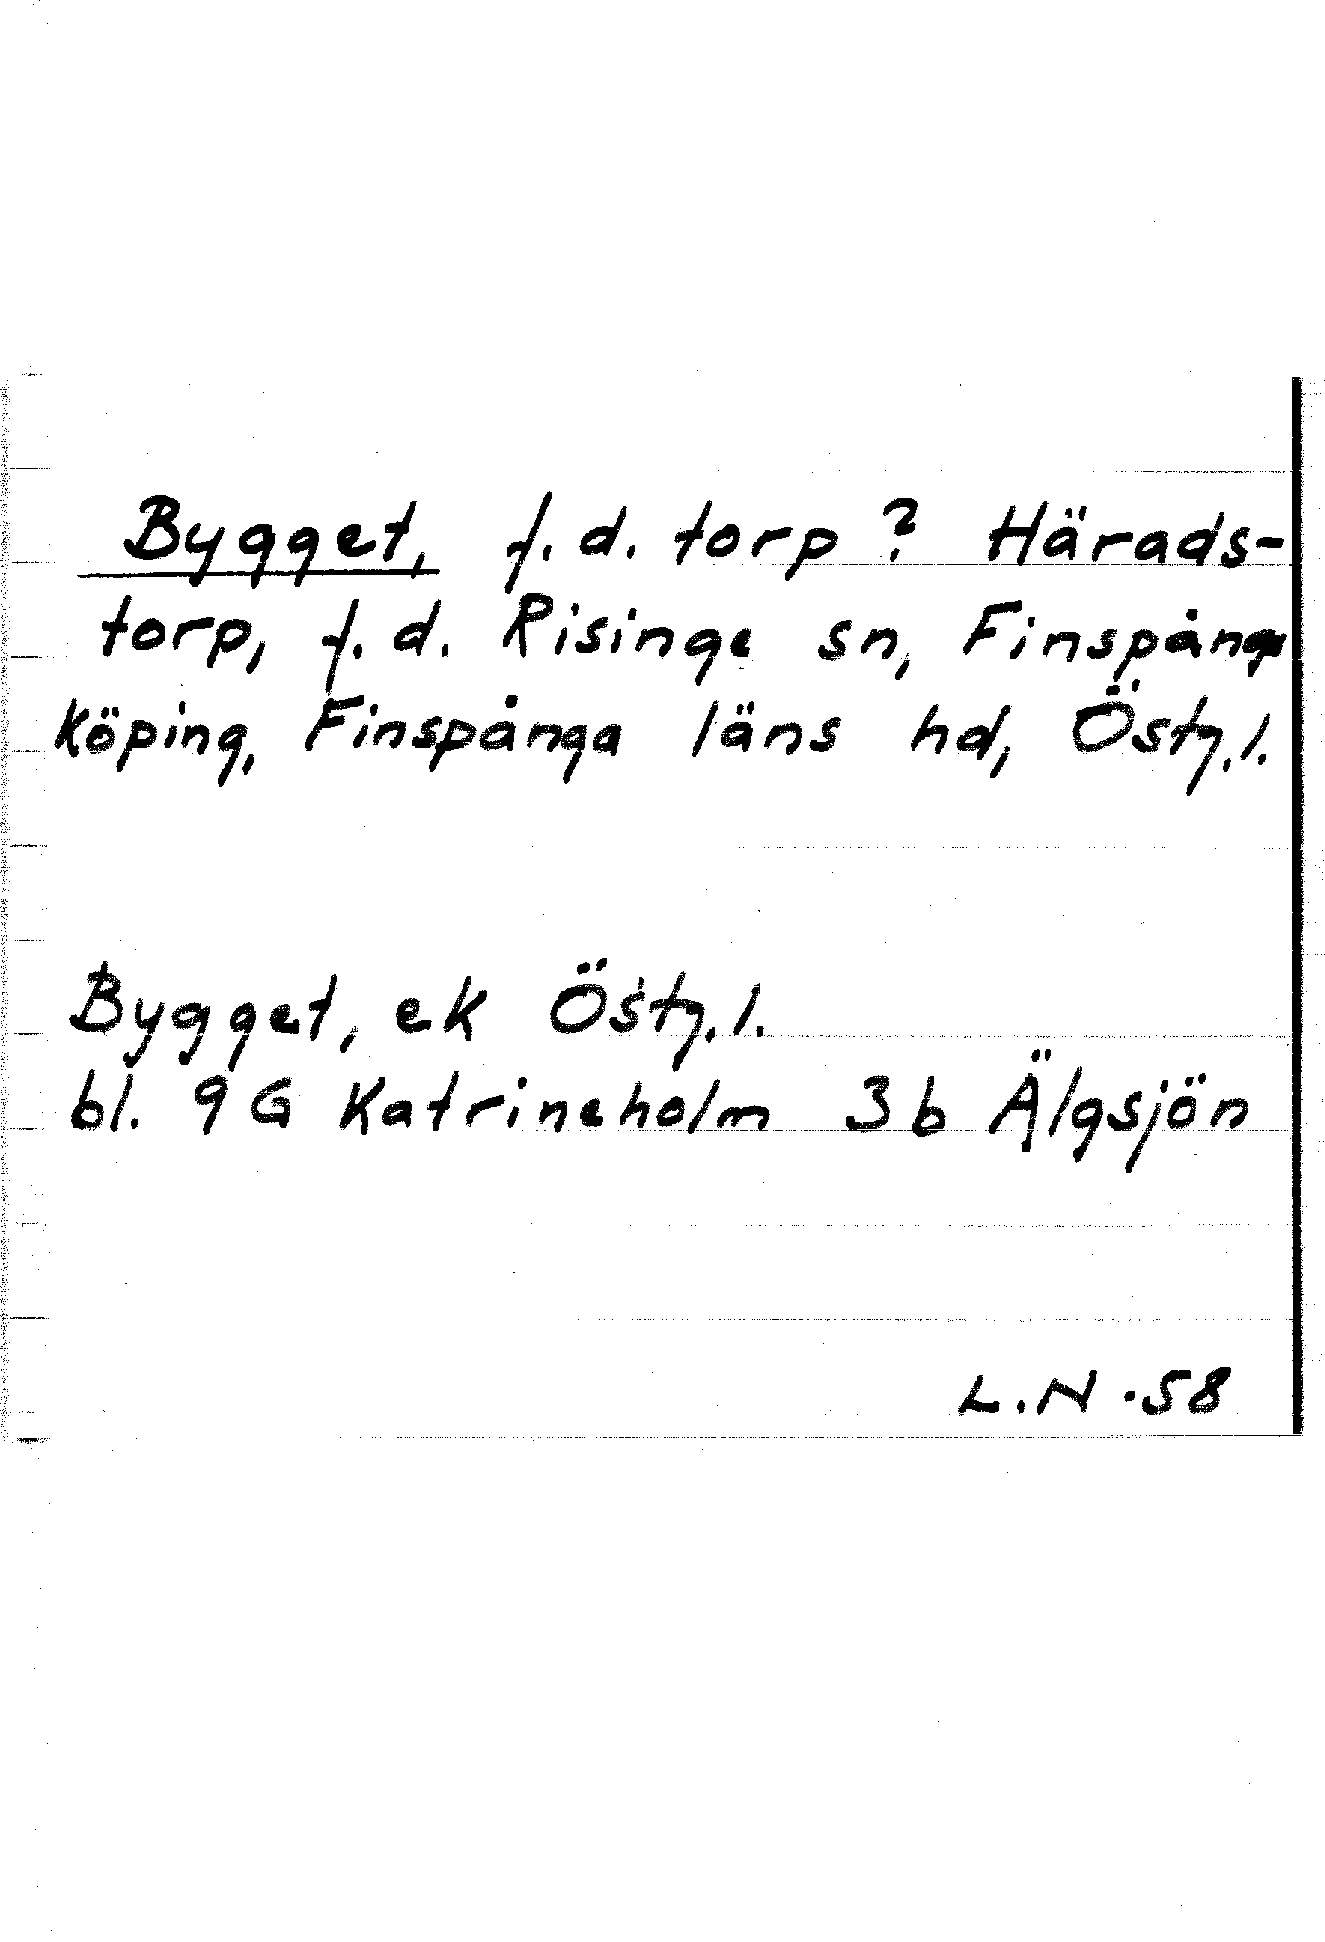 Bygget, f.d. torp? Härads-
torp, f.d. Risinge sn, Finspång
köping, Finspånga läns hd, Östg.l.
Bygget, ek Östg.l.
bl. 9G Katrineholm 3b Älgsjön
L.N. ·58